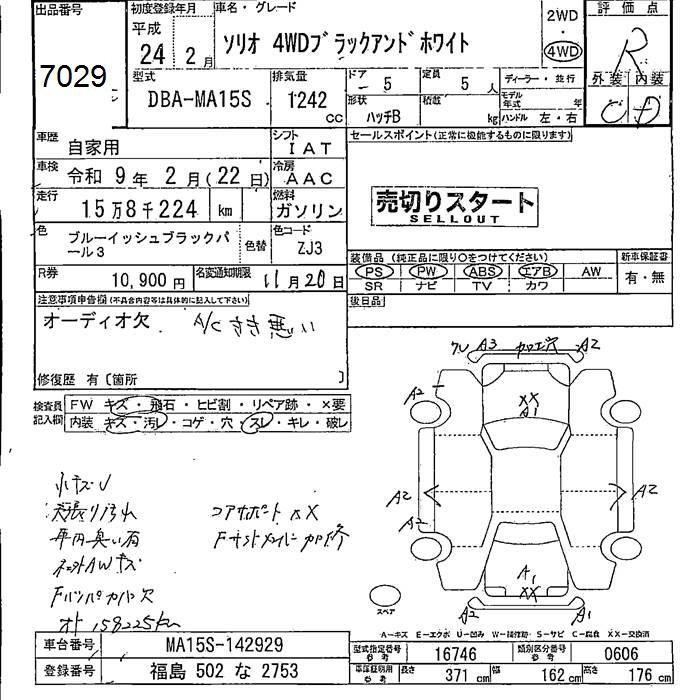 出品番号
7029
初度登録年月
平成
24年 2月
車名・グレード
ソリオ 4WDブラックアンドホワイト
2WD
・
4WD
評価点
R
外装 内装
C D
型式
DBA-MA15S
排気量
1242
cc
ドア
5
定員
5人
形状
ハッチB
積載
kg
ディーラー・並行
モデル年式 年
ハンドル 左・右
車歴
自家用
シフト
IAT
車検
令和 9年 2月(22日)
冷房
AAC
走行
15万8千224 km
燃料
ガソリン
色
ブルーイッシュブラックパール3
色替
色コード
ZJ3
R券
10,900円
名変通知期限
11月20日
セールスポイント(正常に機能するものに限ります)
売切りスタート
SELLOUT
装備品(純正品に限り○をつけてください)
PS PW ABS エアB AW
SR ナビ TV カワ
新車保証書
有・無
後日品
注意事項申告欄(不具合内容等は具体的に記入して下さい)
オーディオ欠 A/C きき悪い
修復歴 有〔箇所 〕
検査員記入欄
FW キズ・飛石・ヒビ割・リペア跡・×要
内装 キズ・汚レ・コゲ・穴・スレ・キレ・破レ
小キズU
天張り汚れ
車内臭い有
コアサポートXX
Fバンパカバー欠
オト 158225km
A3 加工穴 A2
A2
XX
A1
A2
A2
A2
A1
XX
A2
A1
スペア
A-キズ E-エクボ U-凹み W-補修跡 S-サビ C-腐食 XX-交換済
車台番号
MA15S-142929
登録番号
福島 502 な 2753
型式指定番号
参考
16746
類別区分番号
参考
0606
車庫証明用
参考
長さ 371 cm
幅 162 cm
高さ 176 cm